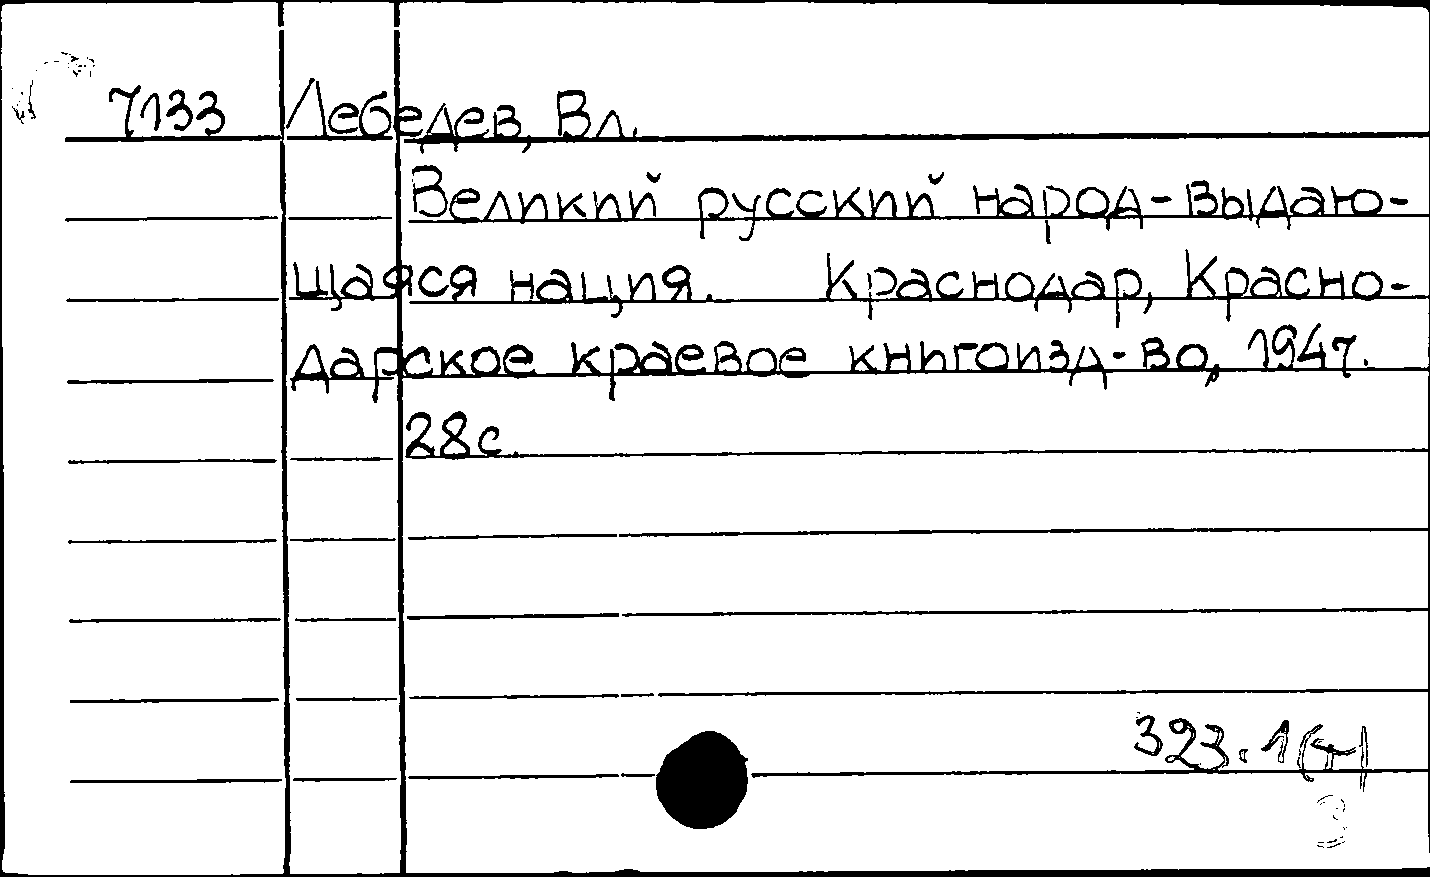 7133 Лебедев, Вл.
Великий русский народ-выдаю-
щаяся нация. Краснодар, Красно-
дарское краевое книгоизд-во, 1947.
28с.
323.1(т)
3